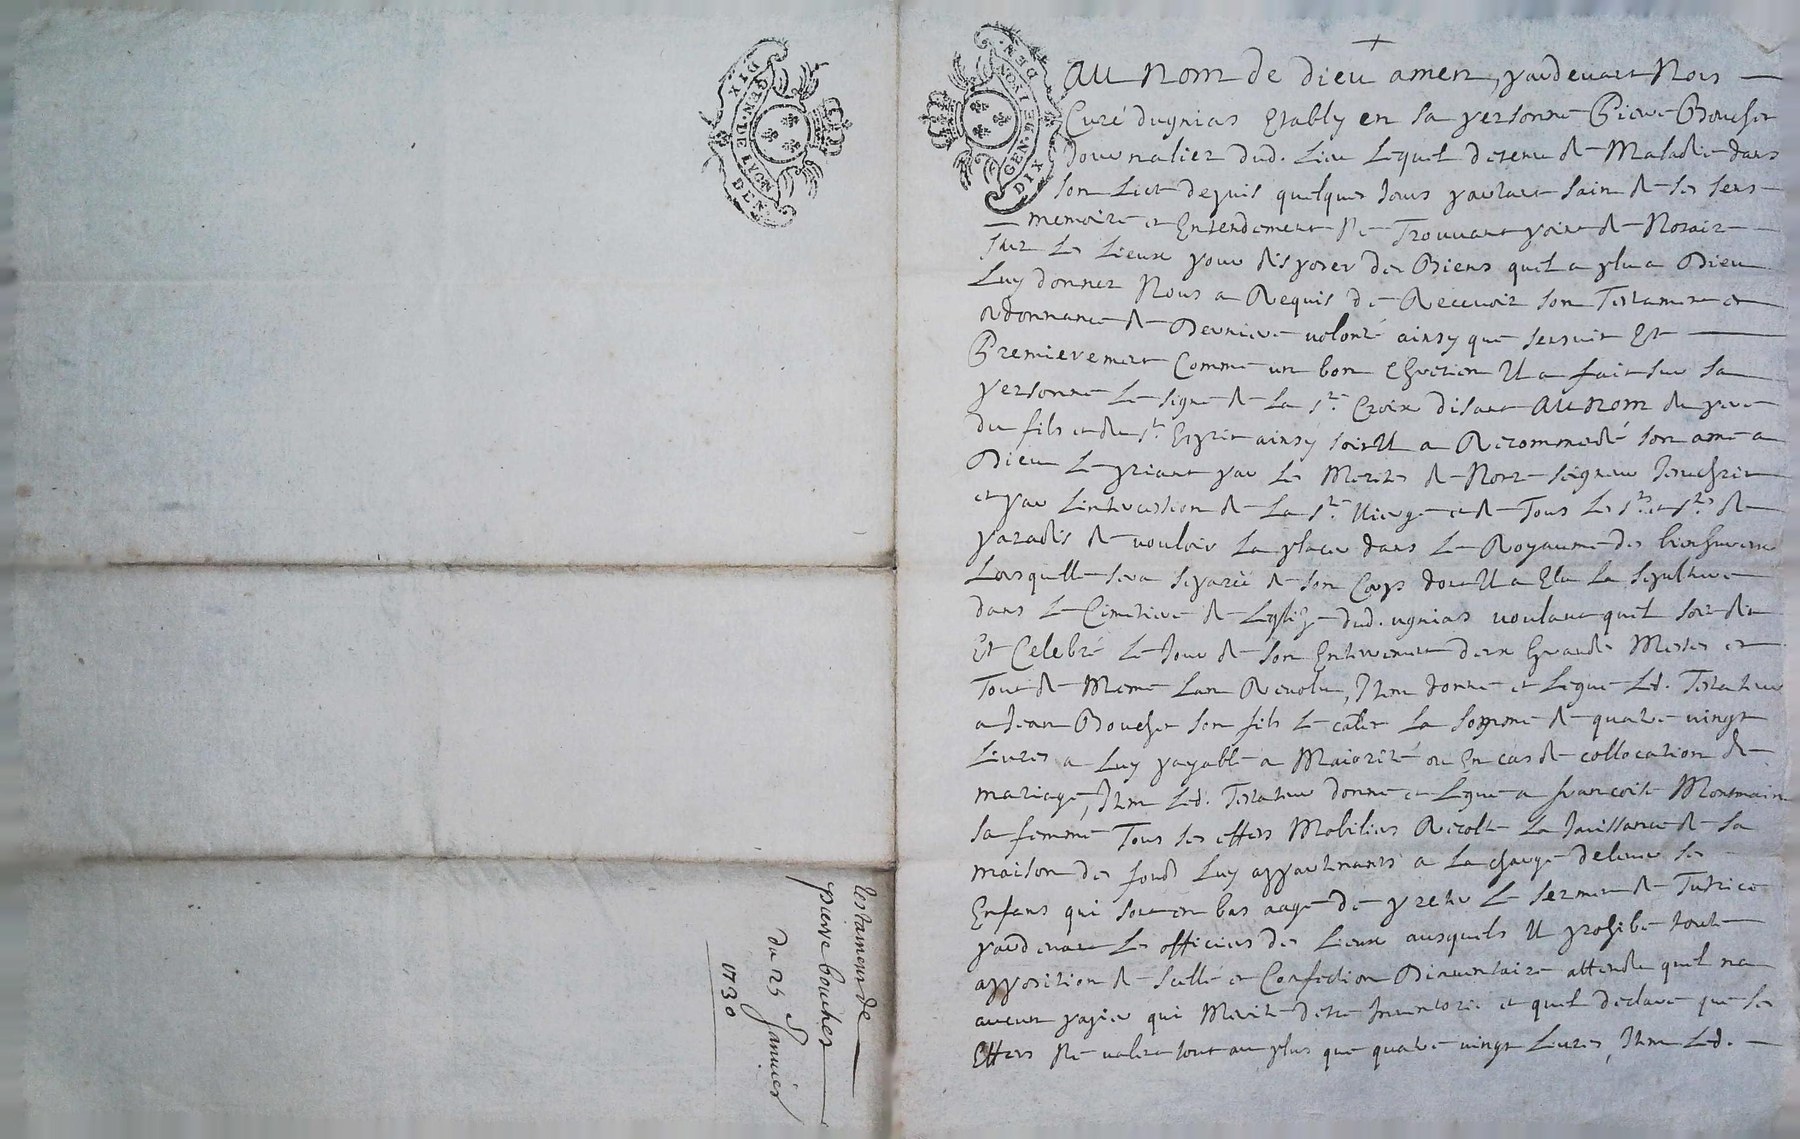 GEN. DE LYON
DIX DEN.
testament de
pierre boucher
du 25 Janvier
1730
GEN. DE LYON
DIX DEN.
+
Au Nom de Dieu amen, pardevant Nous
Curé dugnias Etably en sa personne Pierre Boucher
Journalier dud. Lieu Lequel detenu de Maladie dans
son Lict depuis quelques Jours parlant sain de ses sens
memoire et Entendement Ne Trouvant point de Notaire
sur Les Lieux pour disposer des Biens quil a plu a Dieu
Luy donner Nous a Requis de Recevoir son Testament et
ordonnance de Derniere volonté ainsy que sensuit Et
Premierement Comme un bon Chretien Il a fait sur sa
personne Le signe de La ste. Croix disant Au nom du pere
du fils et du st. Esprit ainsy soit Il a Recommendé son ame a
Dieu Le priant par Les Merites de Notre seigneur Jesuchrist
et par Lintercession de La ste. Vierge et de Tous Les sts. et stes. de
paradis de vouloir La placer dans Le Royaume des bienheureux
Lorsquelle sera separée de son Corps dont Il a Elu La sepulture
dans Le Cimetiere de Leglize dud. ugnias voulant quil soit dit
Et Celebré Le Jour de son Enterrement deux Grandes Messes et
Tout de Meme Lan Revolu, Item donne et Legue Led. Testateur
a Jean Boucher son fils Le cadet La somme de quatre vingt
Livres a Luy payable a Maiorité ou En cas de collocation de
mariage, Item Led. Testateur donne et Legue a francoise Montmain
sa femme Tous ses effets Mobiliers Recolte La Jouissance de sa
maison des fonds Luy appartenants a La charge delever ses
Enfans qui sont en bas aage de preter Le serment de Tutrice
pardevant Les officiers des Lieux ausquels Il prohibe toute
apposition de scellé et Confection Dinventaire attendu quil na
aucun papier qui Merite detre Inventorié et quil declare que ses
Effets Ne valent tout au plus que quatre vingt Livres, Item Led.